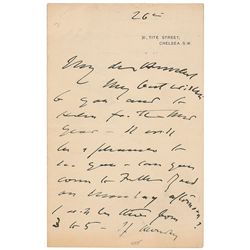 26th
31, TITE STREET,
CHELSEA. S.W.
My dear
My best wishes
to you and to
Helen for the New
Year - It will
be a pleasure to
see you - can you
come to Fulham Road
on Monday afternoon?
I will be there from
3 to 5 - If Monday